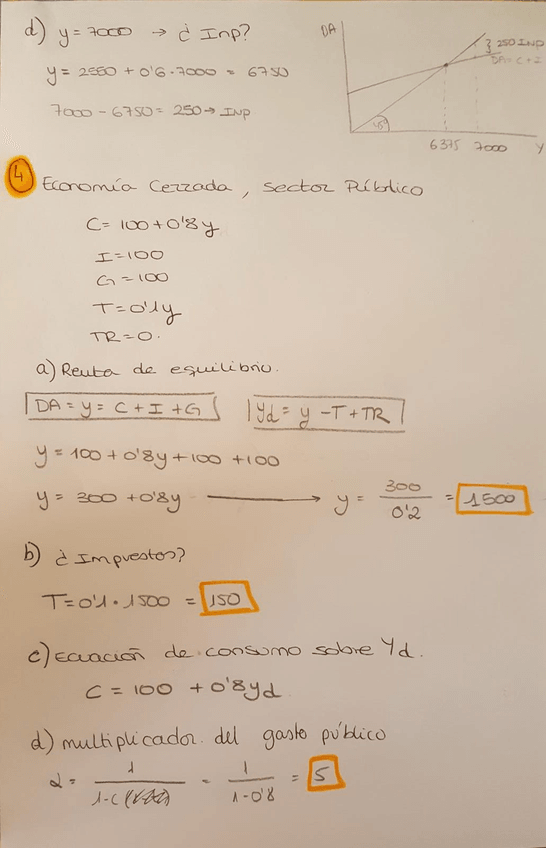 d) y = 7000 → ¿ Inp?
y = 2550 + 0'6 · 7000 = 6750
7000 - 6750 = 250 → INP
DA
250 INP
DA = C + I
45°
6375 7000 Y
4 Economía Cerrada, Sector Público
C = 100 + 0'8y
I = 100
G = 100
T = 0'1y
TR = 0.
a) Renta de equilibrio.
DA = y = C + I + G Yd = y - T + TR
y = 100 + 0'8y + 100 + 100
y = 300 + 0'8y → y = 300 / 0'2 = 1500
b) ¿ Impuestos?
T = 0'1 · 1500 = 150
c) Ecuación de consumo sobre Yd.
C = 100 + 0'8yd.
d) multiplicador del gasto público
α = 1 / 1-c = 1 / 1-0'8 = 5